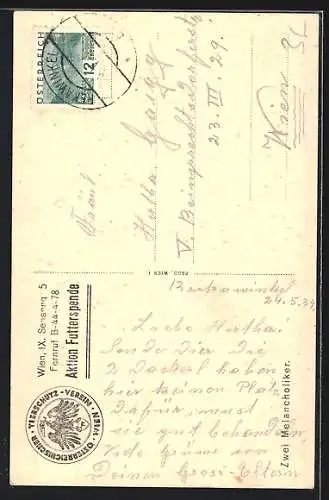 ÖSTERREICH
12
GROSCHEN
Fräul.
Hertha
V.
23. III. 29.
Wien
PAG9, WIEN I
Wien, IX. Senseng. 5
Fernruf B-44-4-78
Aktion Futterspende
ÖSTERREICHISCHER · TIERSCHUTZ-VEREIN · WIEN
Rekawinkel
24.5.34.
Liebe Hertha!
Sende Dir die
2 Dackel haben
hier keinen Platz
Dafür musst
sie gut behandeln
Viele Grüsse von
Deinen Gross-Eltern
Zwei Melancholiker.